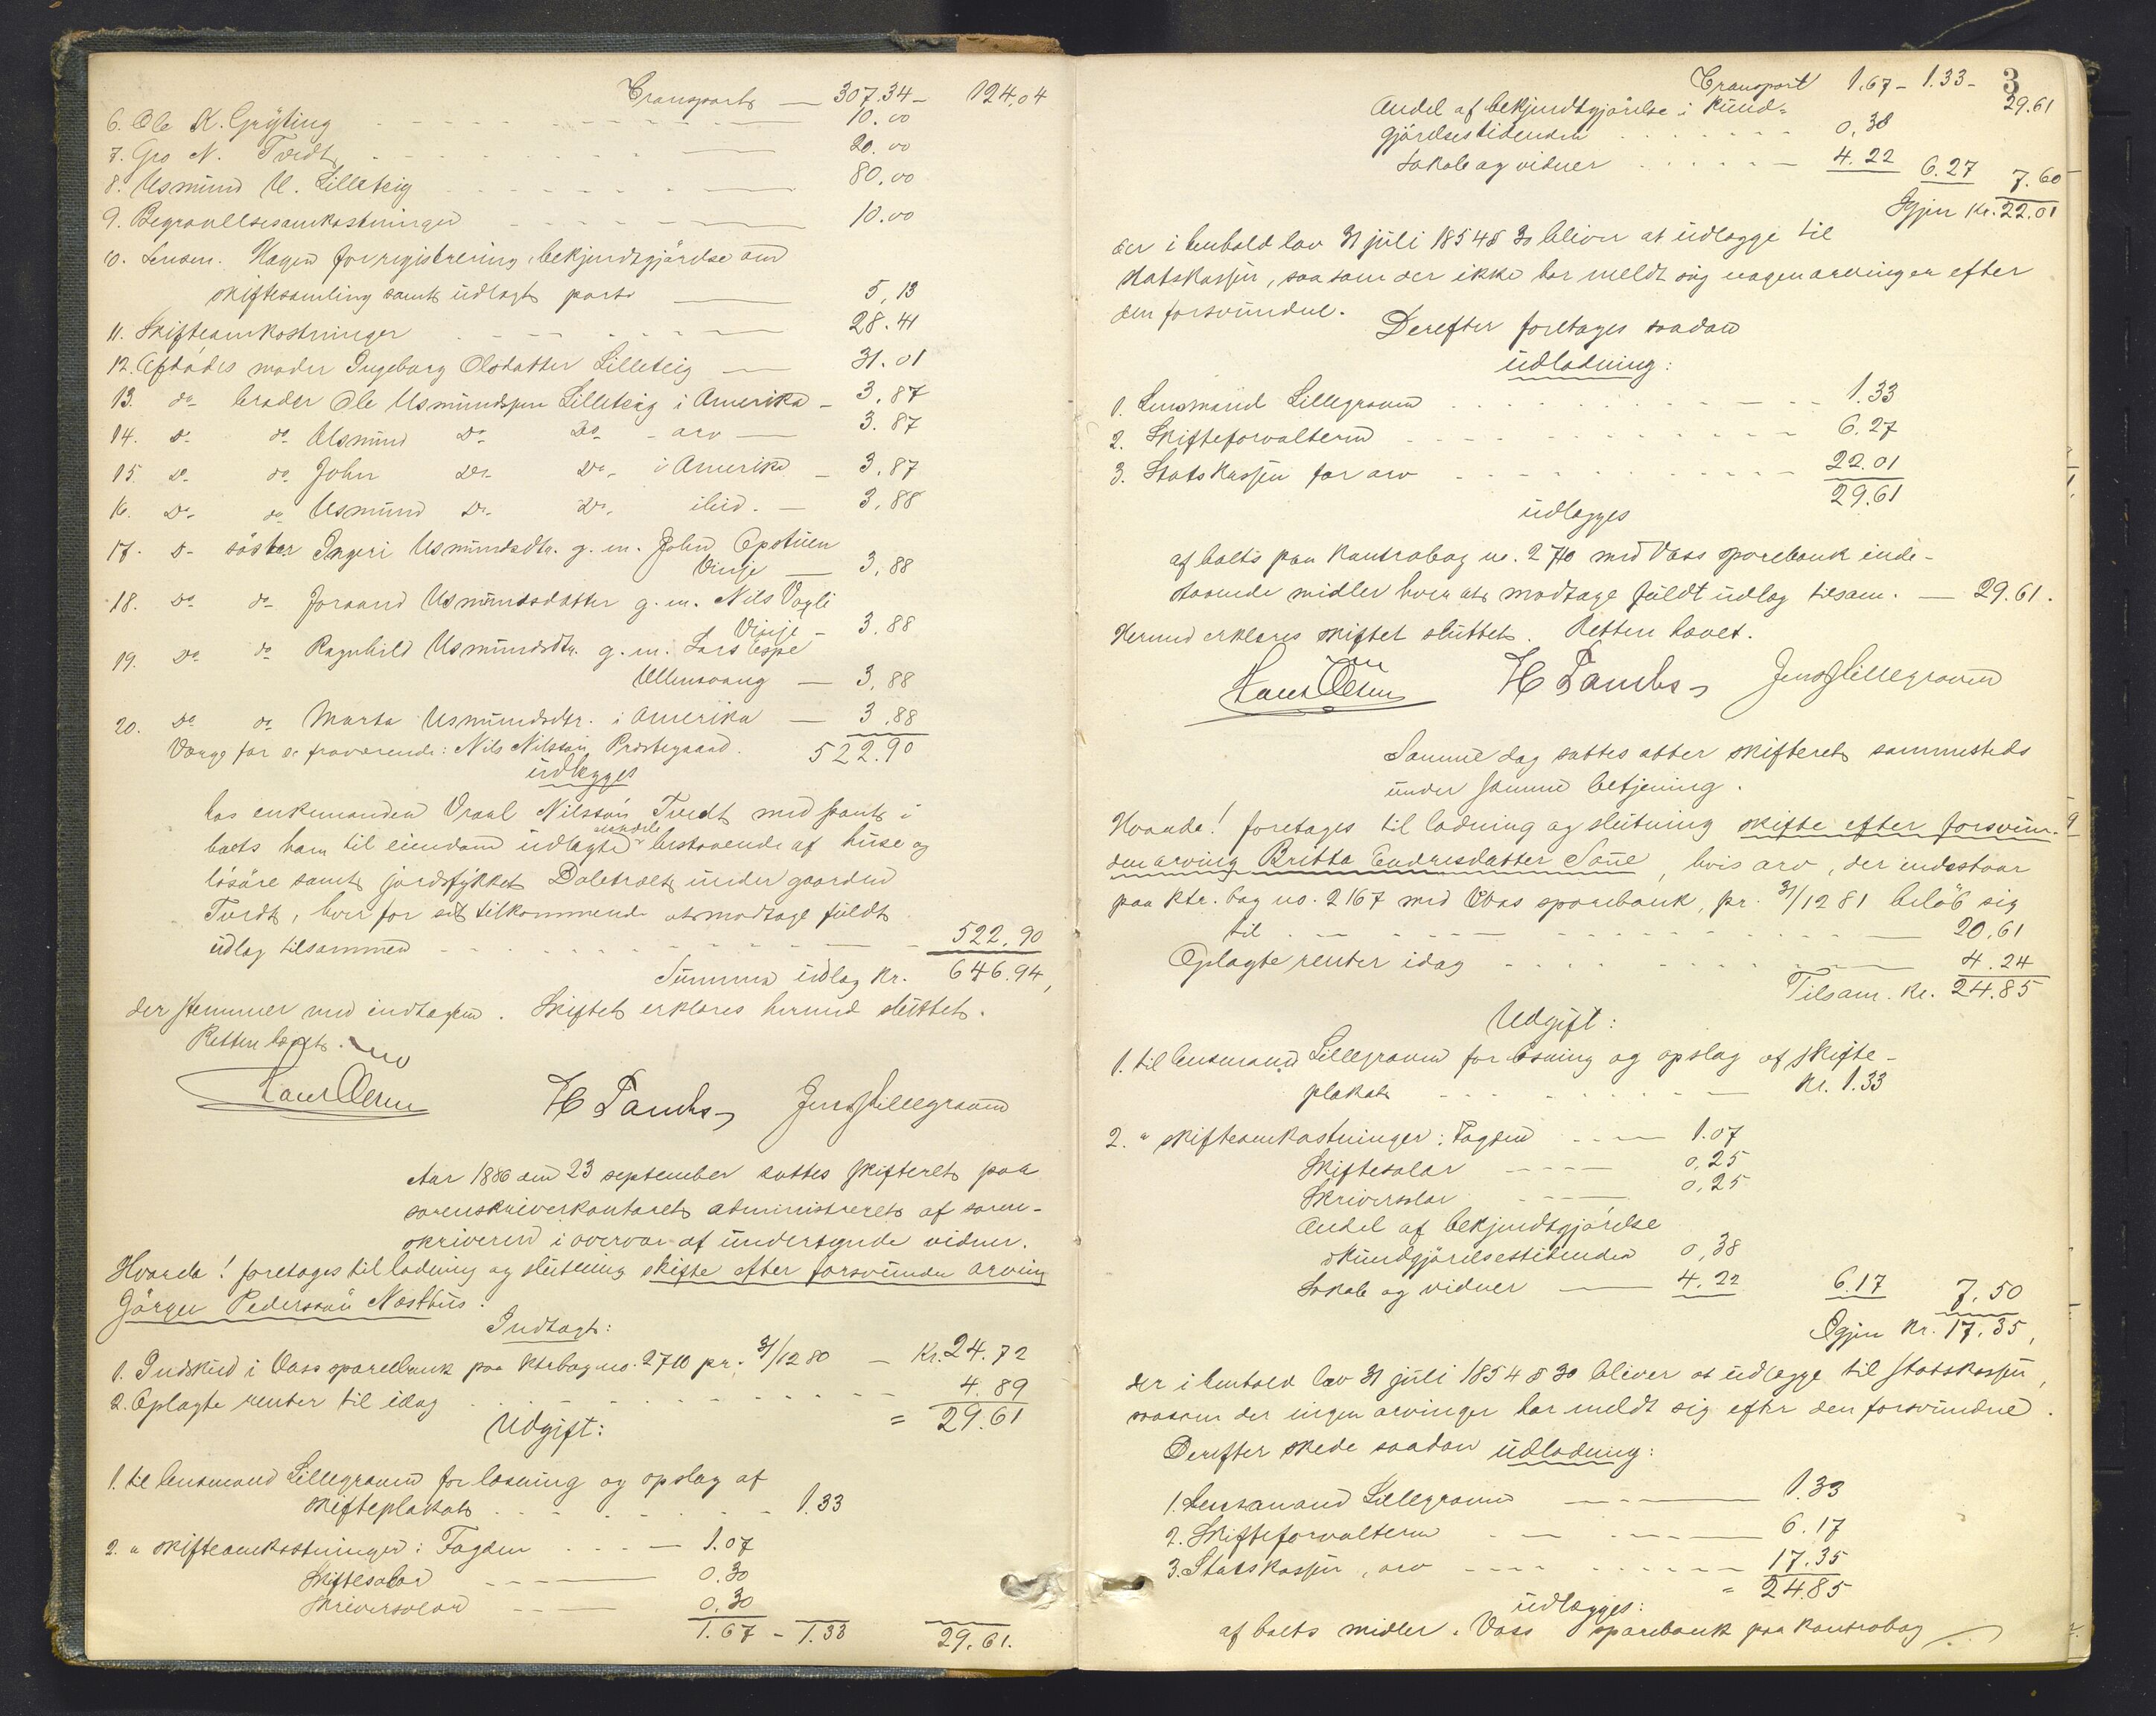 Transport — 307.34 — 124.04
6. Ole K. Gryting 10.00
7. Gro N. Tvedt 20.00
8. Usmund U. Lilleteig 80.00
9. Begravelsesomkostninger 10.00
10. Lensm. Hagen for registrering, bekjendtgjörelse om
skiftesamling samt udlagt porto 5,13
11. Skifteomkostninger 28.41
12. Afdödes moder Ingeborg Olsdatter Lilleteig — 31.01
13. do broder Ole Usmundssen Lilleteig i Amerika — 3.87
14. do do Aasmund do do - arv — 3.87
15. do do John do do i Amerika — 3.87
16. do do Usmund do do ibid. — 3,88
17. do söster Ingeri Usmundsdtr. g. m. John Opstuen
Vinje — 3,88
18. do do Joraand Usmundsdatter g. m. Nils Vagli
Vinje — 3.88
19. do do Ragnhild Usmundsdtr. g. m. Lars Espe
Ullensvang — 3,88
20. do do Marta Usmundsdtr. i Amerika — 3.88
Værge for de fraværende: Nils Nilssön Prestegaard. 522.90
udlægges
hos enkemanden Vraal Nilssön Tvedt med pant i
boets ham til eiendom udlagte eiendele bestaaende af huse og
lösöre samt jordstykket Daletræet under gaarden
Tvedt, hver for sit tilkommende at modtage fuldt
udlæg tilsammen 522.90
Summa udlæg Kr. 646.94,
der stemmer med indtægten. Skiftet erklæres hermed sluttet.
Retten hævet.
H Tambs Jens Lillegraven
Aar 1886 den 23 september sattes skifteret paa
sorenskriverkontoret administreret af soren-
skriveren i overvær af undertegnede vidner.
Hvorda! foretages til lodning og slutning skifte efter forsvunden arving
Jörgen Pederssön Næsthus.
Indtægt:
1. Indskud i Voss sparebank paa ktrbog no. 2710 pr. 31/12 80 — Kr. 24.72
2. Oplagte renter til idag 4.89
= 29.61
Udgift:
1. til lensmand Lillegraven for læsning og opslag af
skifteplakat 1.33
2. " skifteomkostninger: Fogden 1.07
Skiftesalær 0.30
Skriversalær 0.30
1.67 - 1.33 29.61.
3
Transport 1.67 - 1.33 -
29.61
Andel af bekjendtgjörelse i Kund-
gjörelsestidenden 0,38
Lokale og vidner 4.22 6.27 7.60
Igjen Kr. 22.01
der i henhold lov 31 juli 1854 § 30 bliver at udlægge til
statskassen, saasom der ikke har meldt sig nogen arvinger efter
den forsvundne.
Derefter foretages saadan
udlodning:
1. Lensmand Lillegraven 1.33
2. Skifteforvalteren 6.27
3. Statskassen for arv 22.01
29.61
udlægges
af boets paa Kontrabog no. 2710 med Voss sparebank inde-
staaende midler hver at modtage fuldt udlæg tilsam. — 29.61.
Hermed erklæres skiftet sluttet. Retten hævet.
H Tambs Jens Lillegraven
Samme dag sattes atter skifteret sammesteds
under samme betjening.
Hvorda! foretages til lodning og slutning skifte efter forsvun-
den arving Britta Endresdatter Saue, hvis arv, der indestaar
paa ktr. bog no. 2167 med Voss sparebank, pr. 31/12 81 belöb sig
til 20.61
Oplagte renter idag 4.24
Tilsam. Kr. 24.85
Udgift:
1. til lensmand Lillegraven for læsning og opslag af skifte-
plakat Kr. 1.33
2. " skifteomkostninger: Fogden 1.07
Skiftesalær 0,25
Skriversalær 0,25
Andel af bekjendtgjörelse
i Kundgjörelsestidenden 0,38
Lokale og vidner 4.22 6.17 7.50
Igjen Kr. 17.35,
der i henhold lov 31 juli 1854 § 30 bliver at udlægge til statskassen,
saasom der ingen arvinger har meldt sig efter den forsvundne.
Derefter skede saadan udlodning:
1. Lensmand Lillegraven 1.33
2. Skifteforvalteren 6.17
3. Statskassen, arv 17.35
= 24.85
udlægges:
af boets midler i Voss sparebank paa Kontrabog